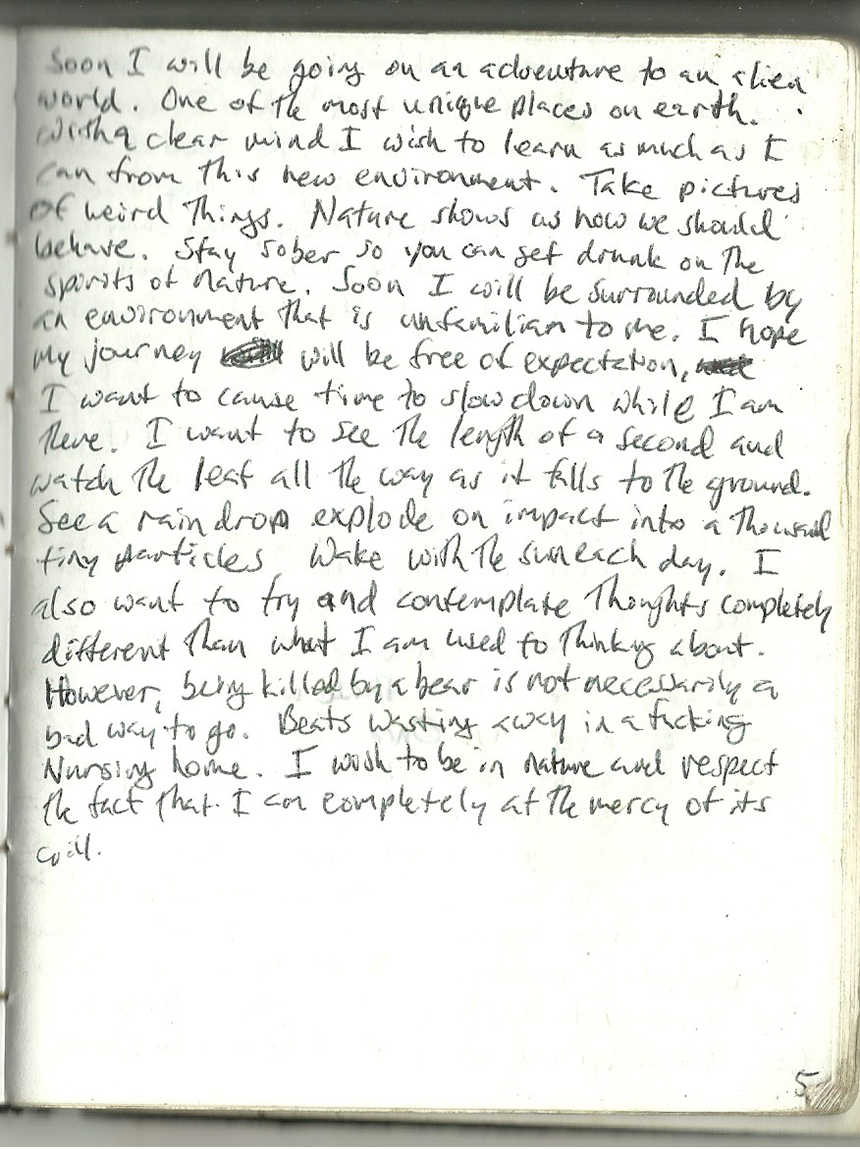 Soon I will be going on an adventure to an alien
world. One of the most unique places on earth.
With a clear mind I wish to learn as much as I
can from this new environment. Take pictures
of weird things. Nature shows us how we should
behave. Stay sober so you can get drunk on the
spirits of nature. Soon I will be surrounded by
an environment that is unfamiliar to me. I hope
my journey will be free of expectation,
I want to cause time to slow down while I am
there. I want to see the length of a second and
watch the leaf all the way as it falls to the ground.
See a raindrop explode on impact into a thousand
tiny particles Wake with the sun each day. I
also want to try and contemplate thoughts completely
different than what I am used to thinking about.
However, being killed by a bear is not necessarily a
bad way to go. Beats wasting away in a fucking
Nursing home. I wish to be in nature and respect
the fact that I am completely at the mercy of its
will.
5